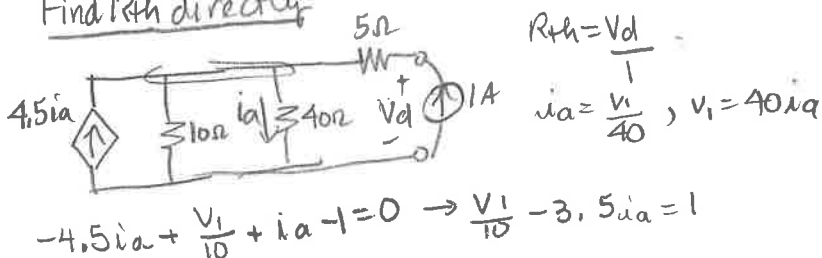 Find Rth directly
5Ω
Rth = Vd/1
4.5ia
10Ω
ia
40Ω
+
Vd
-
1A
ia = V1/40 , V1 = 40ia
-4.5ia + V1/10 + ia - 1 = 0 → V1/10 - 3.5ia = 1